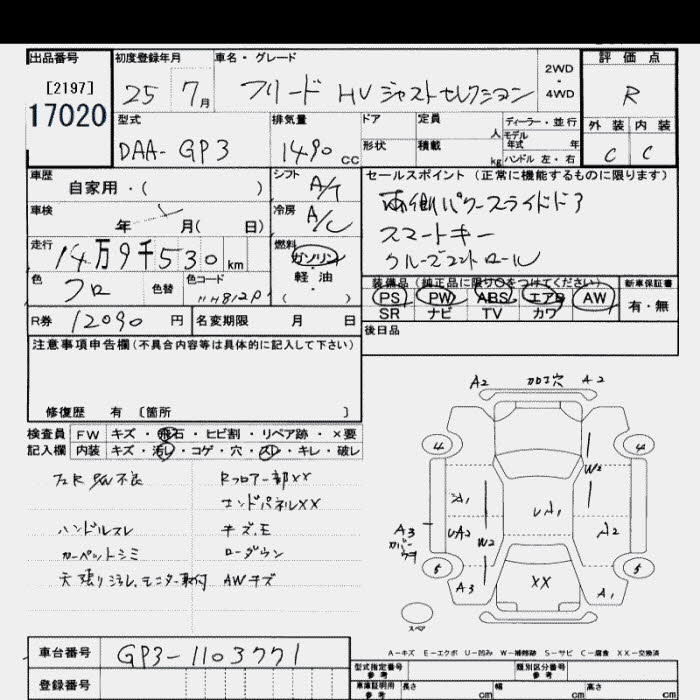 出品番号 初度登録年月 車名・グレード 評価点
[2197] 25 7月 フリード HV ジャストセレクション 2WD・4WD R
17020 型式 排気量 ドア 定員 人 ディーラー・並行 外装 内装
DAA-GP3 1490 CC 形状 積載 kg モデル年式 年 ハンドル 左・右 C C
車歴 自家用・( ) シフト A/T セールスポイント(正常に機能するものに限ります)
車検 年 月( 日) 冷房 A/C 両側パワースライドドア
スマートキー
走行 14万9千530km 燃料 ガソリン・軽油( ) クルーズコントロール
色 クロ 色替 色コード 装備品(純正品に限り○をつけてください) 新車保証書
PS PW ABS エアB AW 有・無
R券 12090円 名変期限 月 日 SR ナビ TV カワ
注意事項申告欄(不具合内容等は具体的に記入して下さい) 後日品
修復歴 有 [箇所 ]
検査員 FW キズ・飛石・ヒビ割・リペア跡・×要
記入欄 内装 キズ・汚れ・コゲ・穴・スレ・キレ・破レ
Rフロアー部XX
エンドパネルXX
ハンドルスレ キズ、E
カーペットシミ ローダウン
天張り汚レ、モニター取付 AWキズ
A2 加工穴 A2
4 4
W2
A1 UA1
UA2 A2
A3 W2
カバーウキ
5 5
A3 XX A1
スペア
A-キズ E-エクボ U-凹み W-補修跡 S-サビ C-腐食 XX-交換済
車台番号 GP3-1103771
型式指定番号 参考 類別区分番号 参考
登録番号 車庫証明用 参考 長さ cm 幅 cm 高さ cm